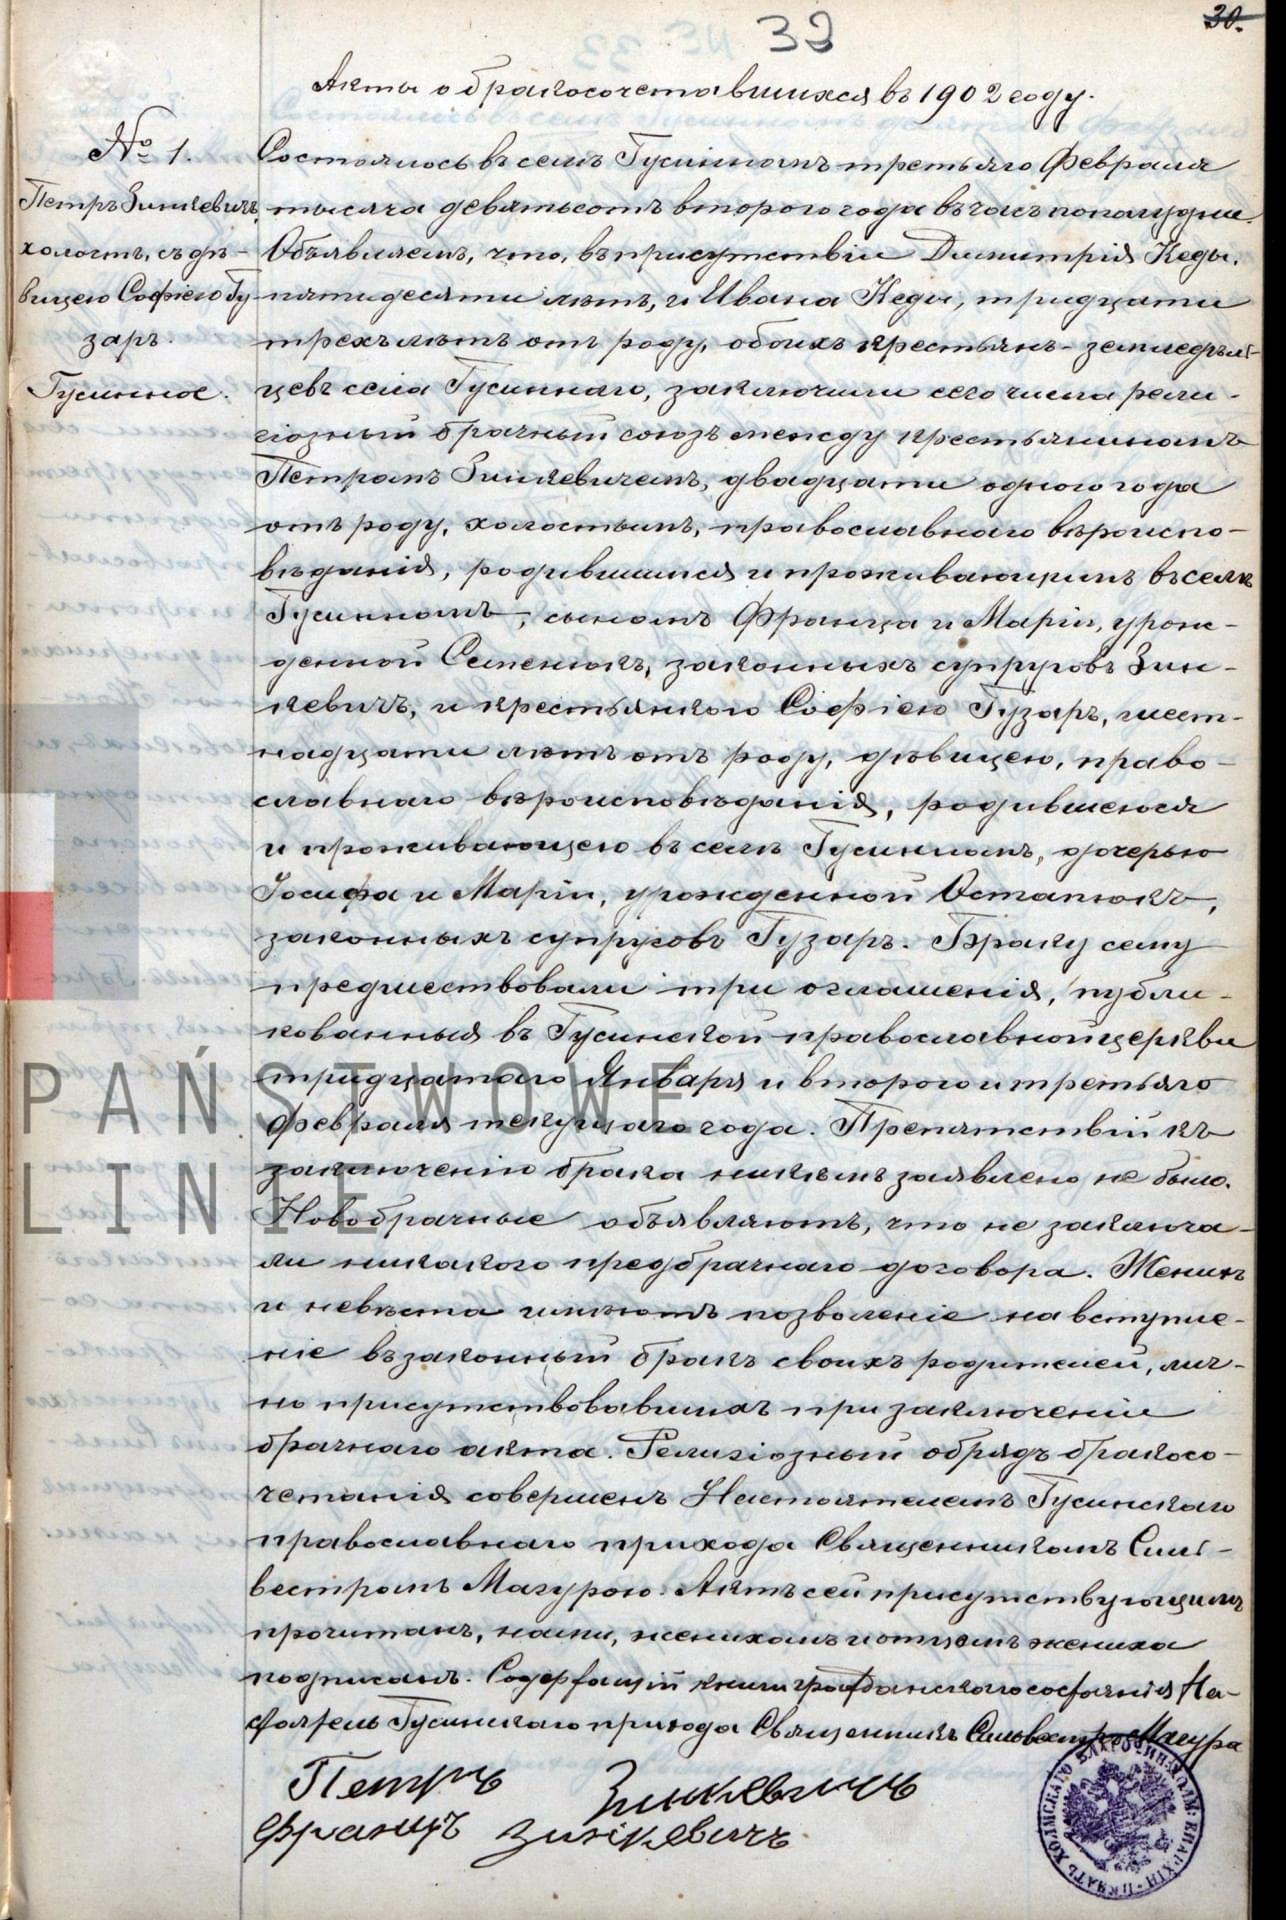 32
30.
Акты о бракосочетавшихся въ 1902 году.
№ 1.
Петръ Зинкевичъ,
холостъ, съ дѣ-
вицею Софіею Гу-
заръ.
Гусинное.
Состоялось въ селѣ Гусинномъ третьяго Февраля
тысяча девятьсотъ второго года въ часъ пополудни.
Объявляемъ, что, въ присутствіи Димитрія Кеды,
пятидесяти лѣтъ, и Ивана Кеды, тридцати
трехъ лѣтъ отъ роду, обоихъ крестьянъ-земледѣль-
цевъ села Гусиннаго, заключили сего числа рели-
гіозный брачный союзъ между крестьяниномъ
Петромъ Зинкевичемъ, двадцати одного года
отъ роду, холостымъ, православнаго вѣроиспо-
вѣданія, родившимся и проживающимъ въ селѣ
Гусинномъ, сыномъ Франца и Маріи, урож-
денной Семенюкъ, законныхъ супруговъ Зин-
кевичъ, и крестьянкою Софіею Гузаръ, шест-
надцати лѣтъ отъ роду, дѣвицею, право-
славнаго вѣроисповѣданія, родившеюся
и проживающею въ селѣ Гусинномъ, дочерью
Іосифа и Маріи, урожденной Остапюкъ,
законныхъ супруговъ Гузаръ. Браку сему
предшествовали три оглашенія, публи-
кованныя въ Гусинской православной церкви
тридцатаго Января и второго и третьяго
Февраля текущаго года. Препятствій къ
заключенію брака никѣмъ заявлено не было.
Новобрачные объявляютъ, что не заключа-
ли никакого предбрачнаго договора. Женихъ
и невѣста имѣютъ позволеніе на вступле-
ніе въ законный бракъ своихъ родителей, лич-
но присутствовавшихъ при заключеніи
брачнаго акта. Религіозный обрядъ бракосо-
четанія совершенъ Настоятелемъ Гусинскаго
православнаго прихода Священникомъ Силь-
вестромъ Мазурою. Актъ сей присутствующимъ
прочитанъ, нами, женихомъ и отцемъ жениха
подписанъ. Содержащій книги гражданскаго состоянія На-
стоятель Гусинскаго прихода Священникъ Сильвестръ Мазура
Петръ Зинкевичъ
Францъ Зинкевичъ
PAŃSTWOWE
LINIE